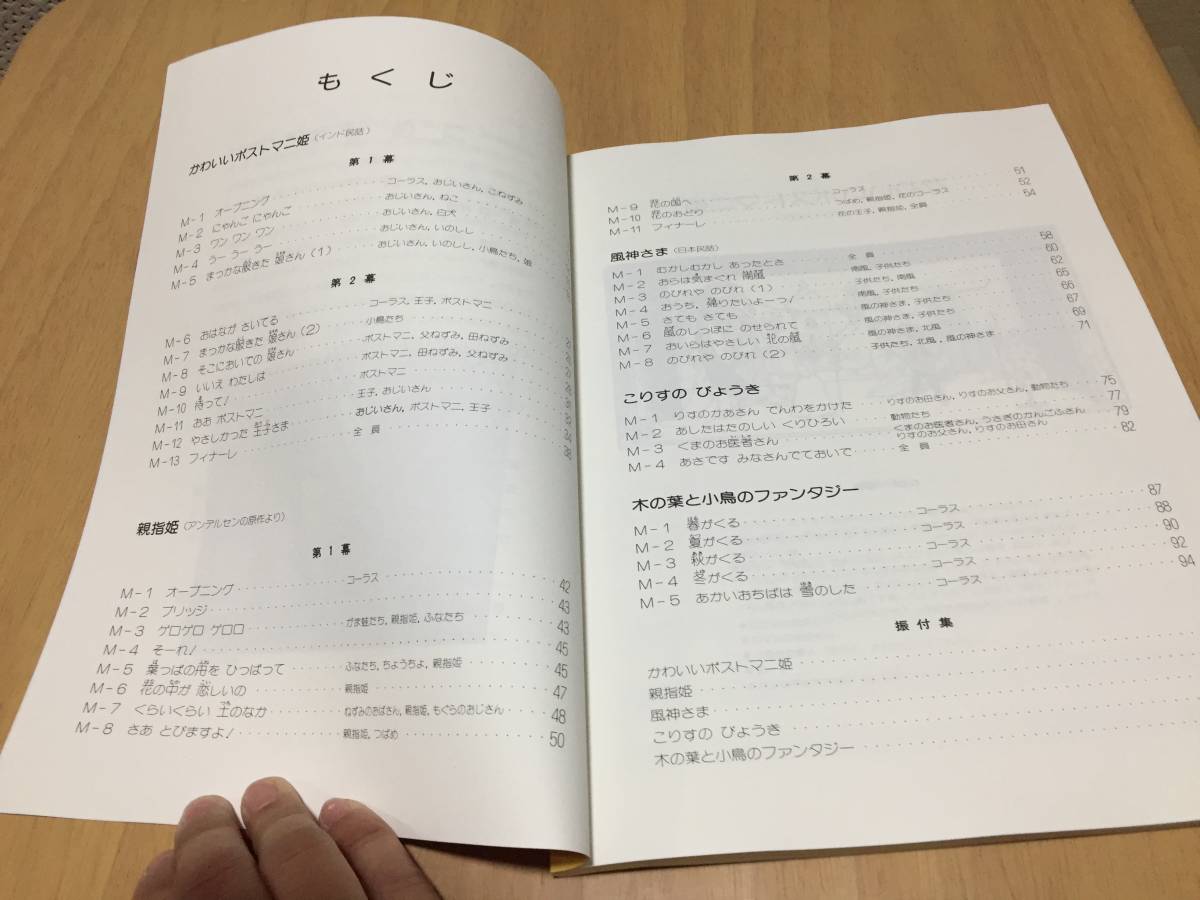 もくじ
かわいいポストマニ姫（インド民話）
第1幕
M－1 オープニング コーラス，おじいさん，こねずみ
M－2 にゃんこ にゃんこ おじいさん，ねこ
M－3 ワン ワン ワン おじいさん，白犬
M－4 うー うー うー おじいさん，いのしし
M－5 まっかな服きた 娘さん（1） おじいさん，いのしし，小鳥たち，娘
第2幕
M－6 おはなが さいてる コーラス，王子，ポストマニ
M－7 まっかな服きた 娘さん（2） 小鳥たち
M－8 そこにおいでの 娘さん ポストマニ，父ねずみ，母ねずみ
M－9 いいえ わたしは ポストマニ，母ねずみ，父ねずみ
M－10 待って！ ポストマニ
M－11 おお ポストマニ 王子，おじいさん
M－12 やさしかった 王子さま おじいさん，ポストマニ，王子 34
M－13 フィナーレ 全員 38
親指姫（アンデルセンの原作より）
第1幕
M－1 オープニング コーラス 42
M－2 ブリッジ 43
M－3 ゲロゲロ ゲロロ がま蛙たち，親指姫，ふなたち 43
M－4 そーれ！ 45
M－5 葉っぱの舟を ひっぱって ふなたち，ちょうちょ，親指姫 45
M－6 花の中が 恋しいの 親指姫 47
M－7 くらいくらい 土のなか ねずみのおばさん，親指姫，もぐらのおじさん 48
M－8 さあ とびますよ！ 親指姫，つばめ 50
第2幕
M－9 花の国へ コーラス 51
M－10 花のおどり つばめ，親指姫，花のコーラス 52
M－11 フィナーレ 花の王子，親指姫，全員 54
風神さま（日本民話）
M－1 むかしむかし あったとさ 全員 58
M－2 おらは気まぐれ 南風 南風，子供たち 60
M－3 のびれや のびれ（1） 子供たち，南風 62
M－4 おうち，帰りたいよーっ！ 南風，子供たち 65
M－5 さても さても 風の神さま，子供たち 66
M－6 風のしっぽに のせられて 風の神さま，子供たち 67
M－7 おいらはやさしい 北の風 風の神さま，北風 69
M－8 のびれや のびれ（2） 子供たち，北風，風の神さま 71
こりすの びょうき
M－1 りすのかあさん でんわをかけた りすのお母さん，りすのお父さん，動物たち 75
M－2 あしたはたのしい くりひろい 動物たち 77
M－3 くまのお医者さん くまのお医者さん，うさぎのかんごふさん 79
りすのお父さん，りすのお母さん
M－4 あきです みなさんでておいで 全員 82
木の葉と小鳥のファンタジー
M－1 春がくる コーラス 87
M－2 夏がくる コーラス 88
M－3 秋がくる コーラス 90
M－4 冬がくる コーラス 92
M－5 あかいおちばは 雪のした コーラス 94
振付集
かわいいポストマニ姫
親指姫
風神さま
こりすの びょうき
木の葉と小鳥のファンタジー